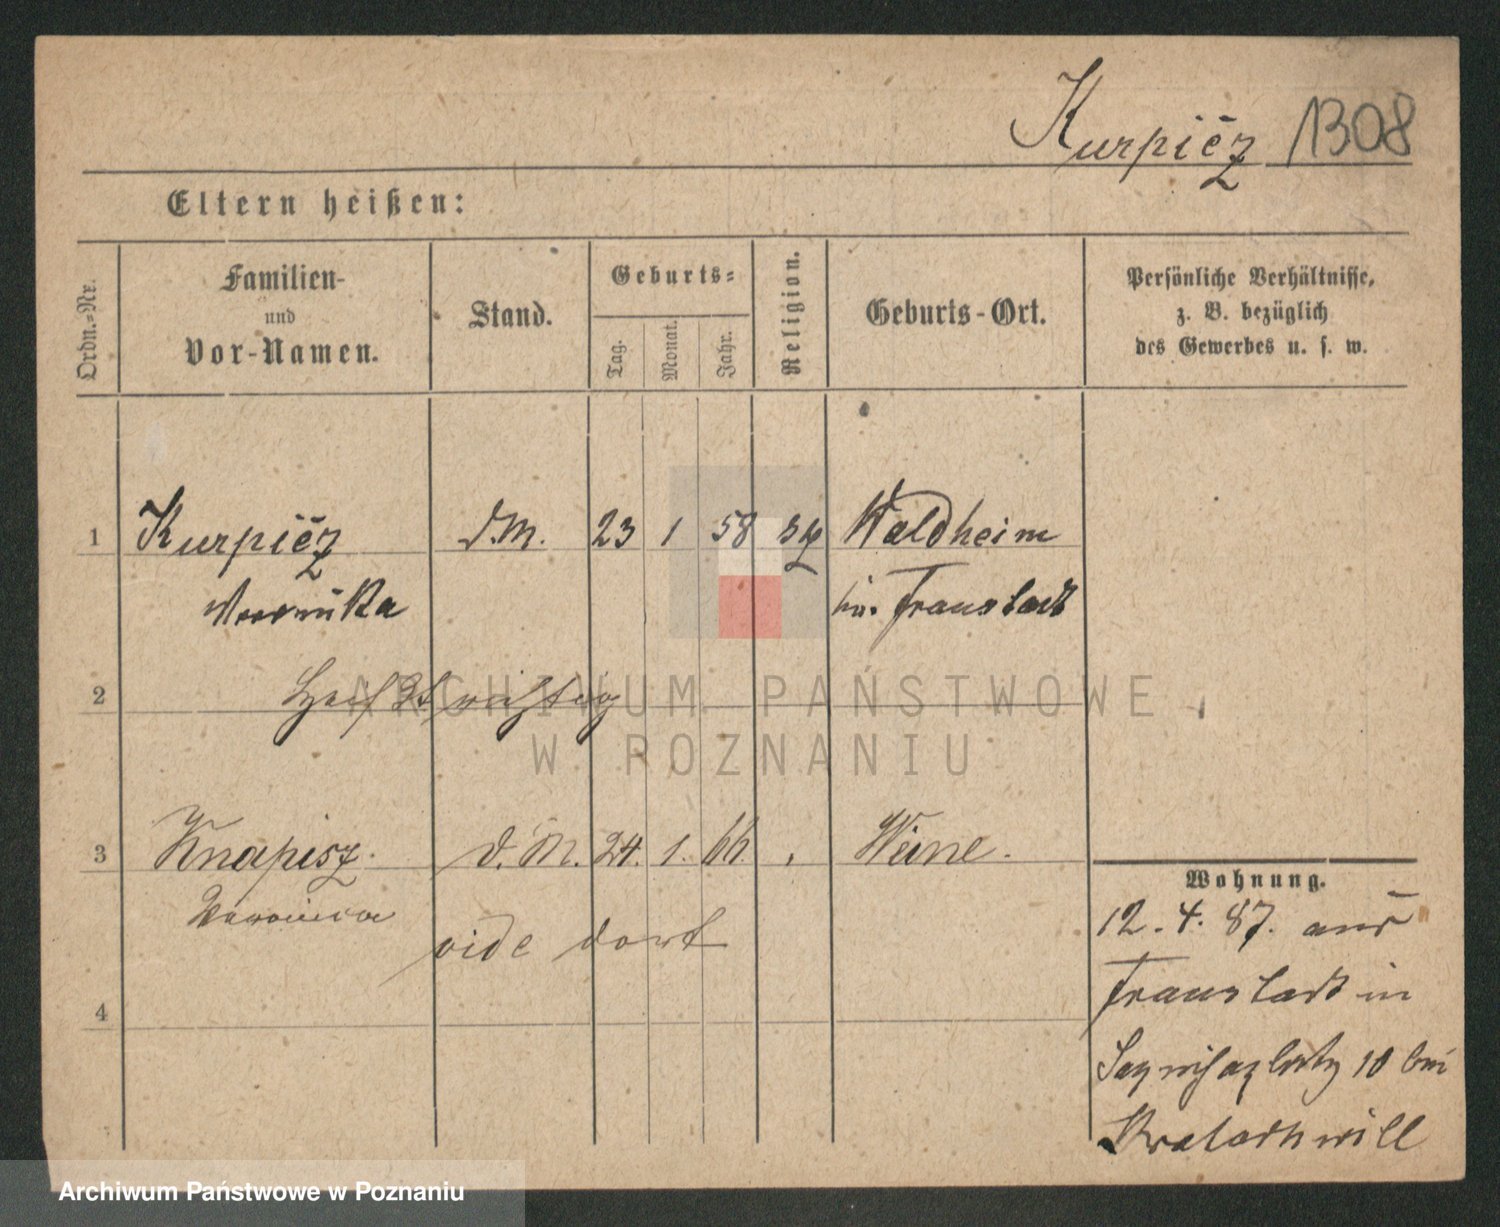 Kurpiéz 1308
Eltern heißen:
Ordn.-Nr.
Familien-
und
Vor-Namen.
Stand.
Geburts-
Tag.
Monat.
Jahr.
Religion.
Geburts-Ort.
Persönliche Verhältnisse,
z. B. bezüglich
des Gewerbes u. s. w.
1 Kurpiéz d.M. 23 1 58 Waldheim
Veronika Fraustadt
2 heißt richtig
3 Knapisz. d. M. 24. 1. 66. Weine.
Veronica
vide dort
4
Wohnung.
12. 4. 87. aus
Fraustadt in
10 bei
ARCHIWUM PAŃSTWOWE
W POZNANIU
Archiwum Państwowe w Poznaniu